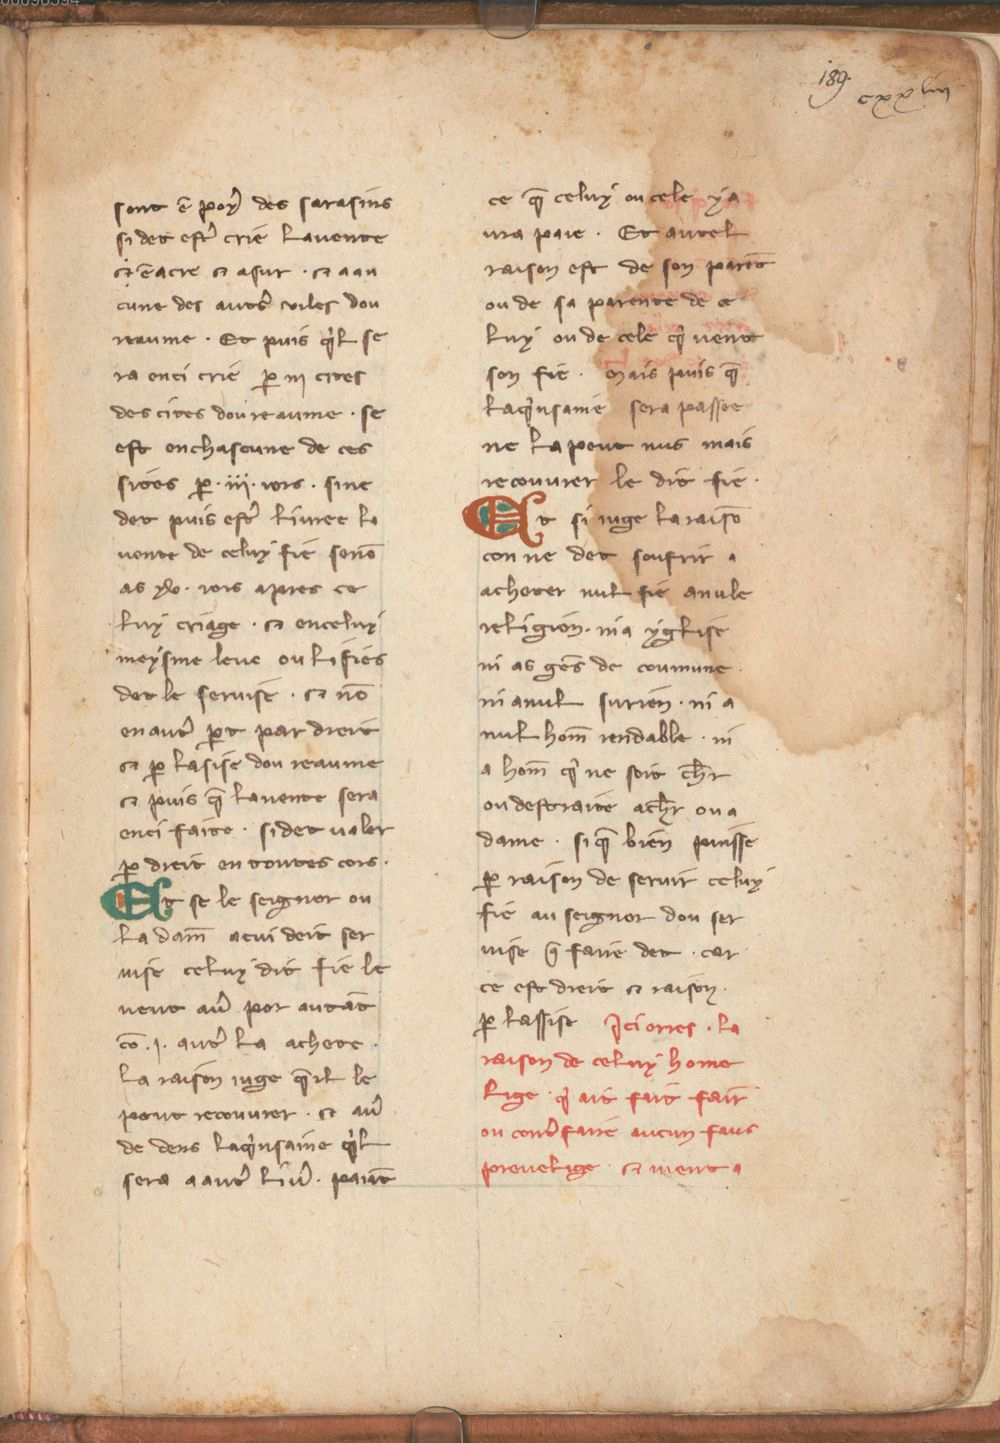 189.
cxxliii
sont ē poỹ des sarasins
si det estr̄ crie lavente
⁊ ē acre ⁊ asur · ⁊ a au
cune des autr̄ viles dou
reaume · Et puis q̄l se
ra enci crie ꝑ iij cites
des cites dou reaume · se
est en chascune de ces
sites ꝑ · iij · iors · sine
det puis estr̄ livree la
vente de celuy fie senō
as xlv · iors apres ce
luy criage · ⁊ en celuy
meysme leue ou li fies
det le servise · ⁊ nō
en autr̄ ꝑt par dreit
⁊ ꝑ lasise dou reaume
⁊ puis q̄ lavente sera
enci faite · si det valer
ꝑ dreit en toutes cors ·
Et se le seignor ou
la dam̄ a cui deit ser
vise celuy dit fie le
veut aū por autāt
cō · j · autr̄ la achete ·
la raison iuge q̄ il le
peut recouvrer · ⁊ aū
de dens laq̄nsaine q̄l
sera a autr̄ liū · paiāt
ce q̄ celuy ou cele y a
vra paie · Et autel
raison est de son parēt
ou de sa parente de ce
luy ou de cele q̄ vent
son fie · Mais puis q̄
laq̄nsaine sera passee
ne la peut nus mais
recouvrer le dit fie ·
Et si iuge la raisō
con ne det soufrir a
acheter nul fie a nule
religion · ni a yglise
ni as gēs de coumune ·
ni a nul surien · ni a
nul hom̄ rendable · ni
a hom̄ q̄ ne soit ch̄r
ou destraite a ch̄r ou a
dame · si q̄ bien puisse
ꝑ raison de servir celuy
fie au seignor dou ser
vise q̄ faire det · car
ce est dreit ⁊ raison ·
ꝑ lassise Ici orres · la
raison de celuy home
lige · q̄ ait fait fair̄
ou contr̄faire aucun faus
prevelige · ⁊ ment a